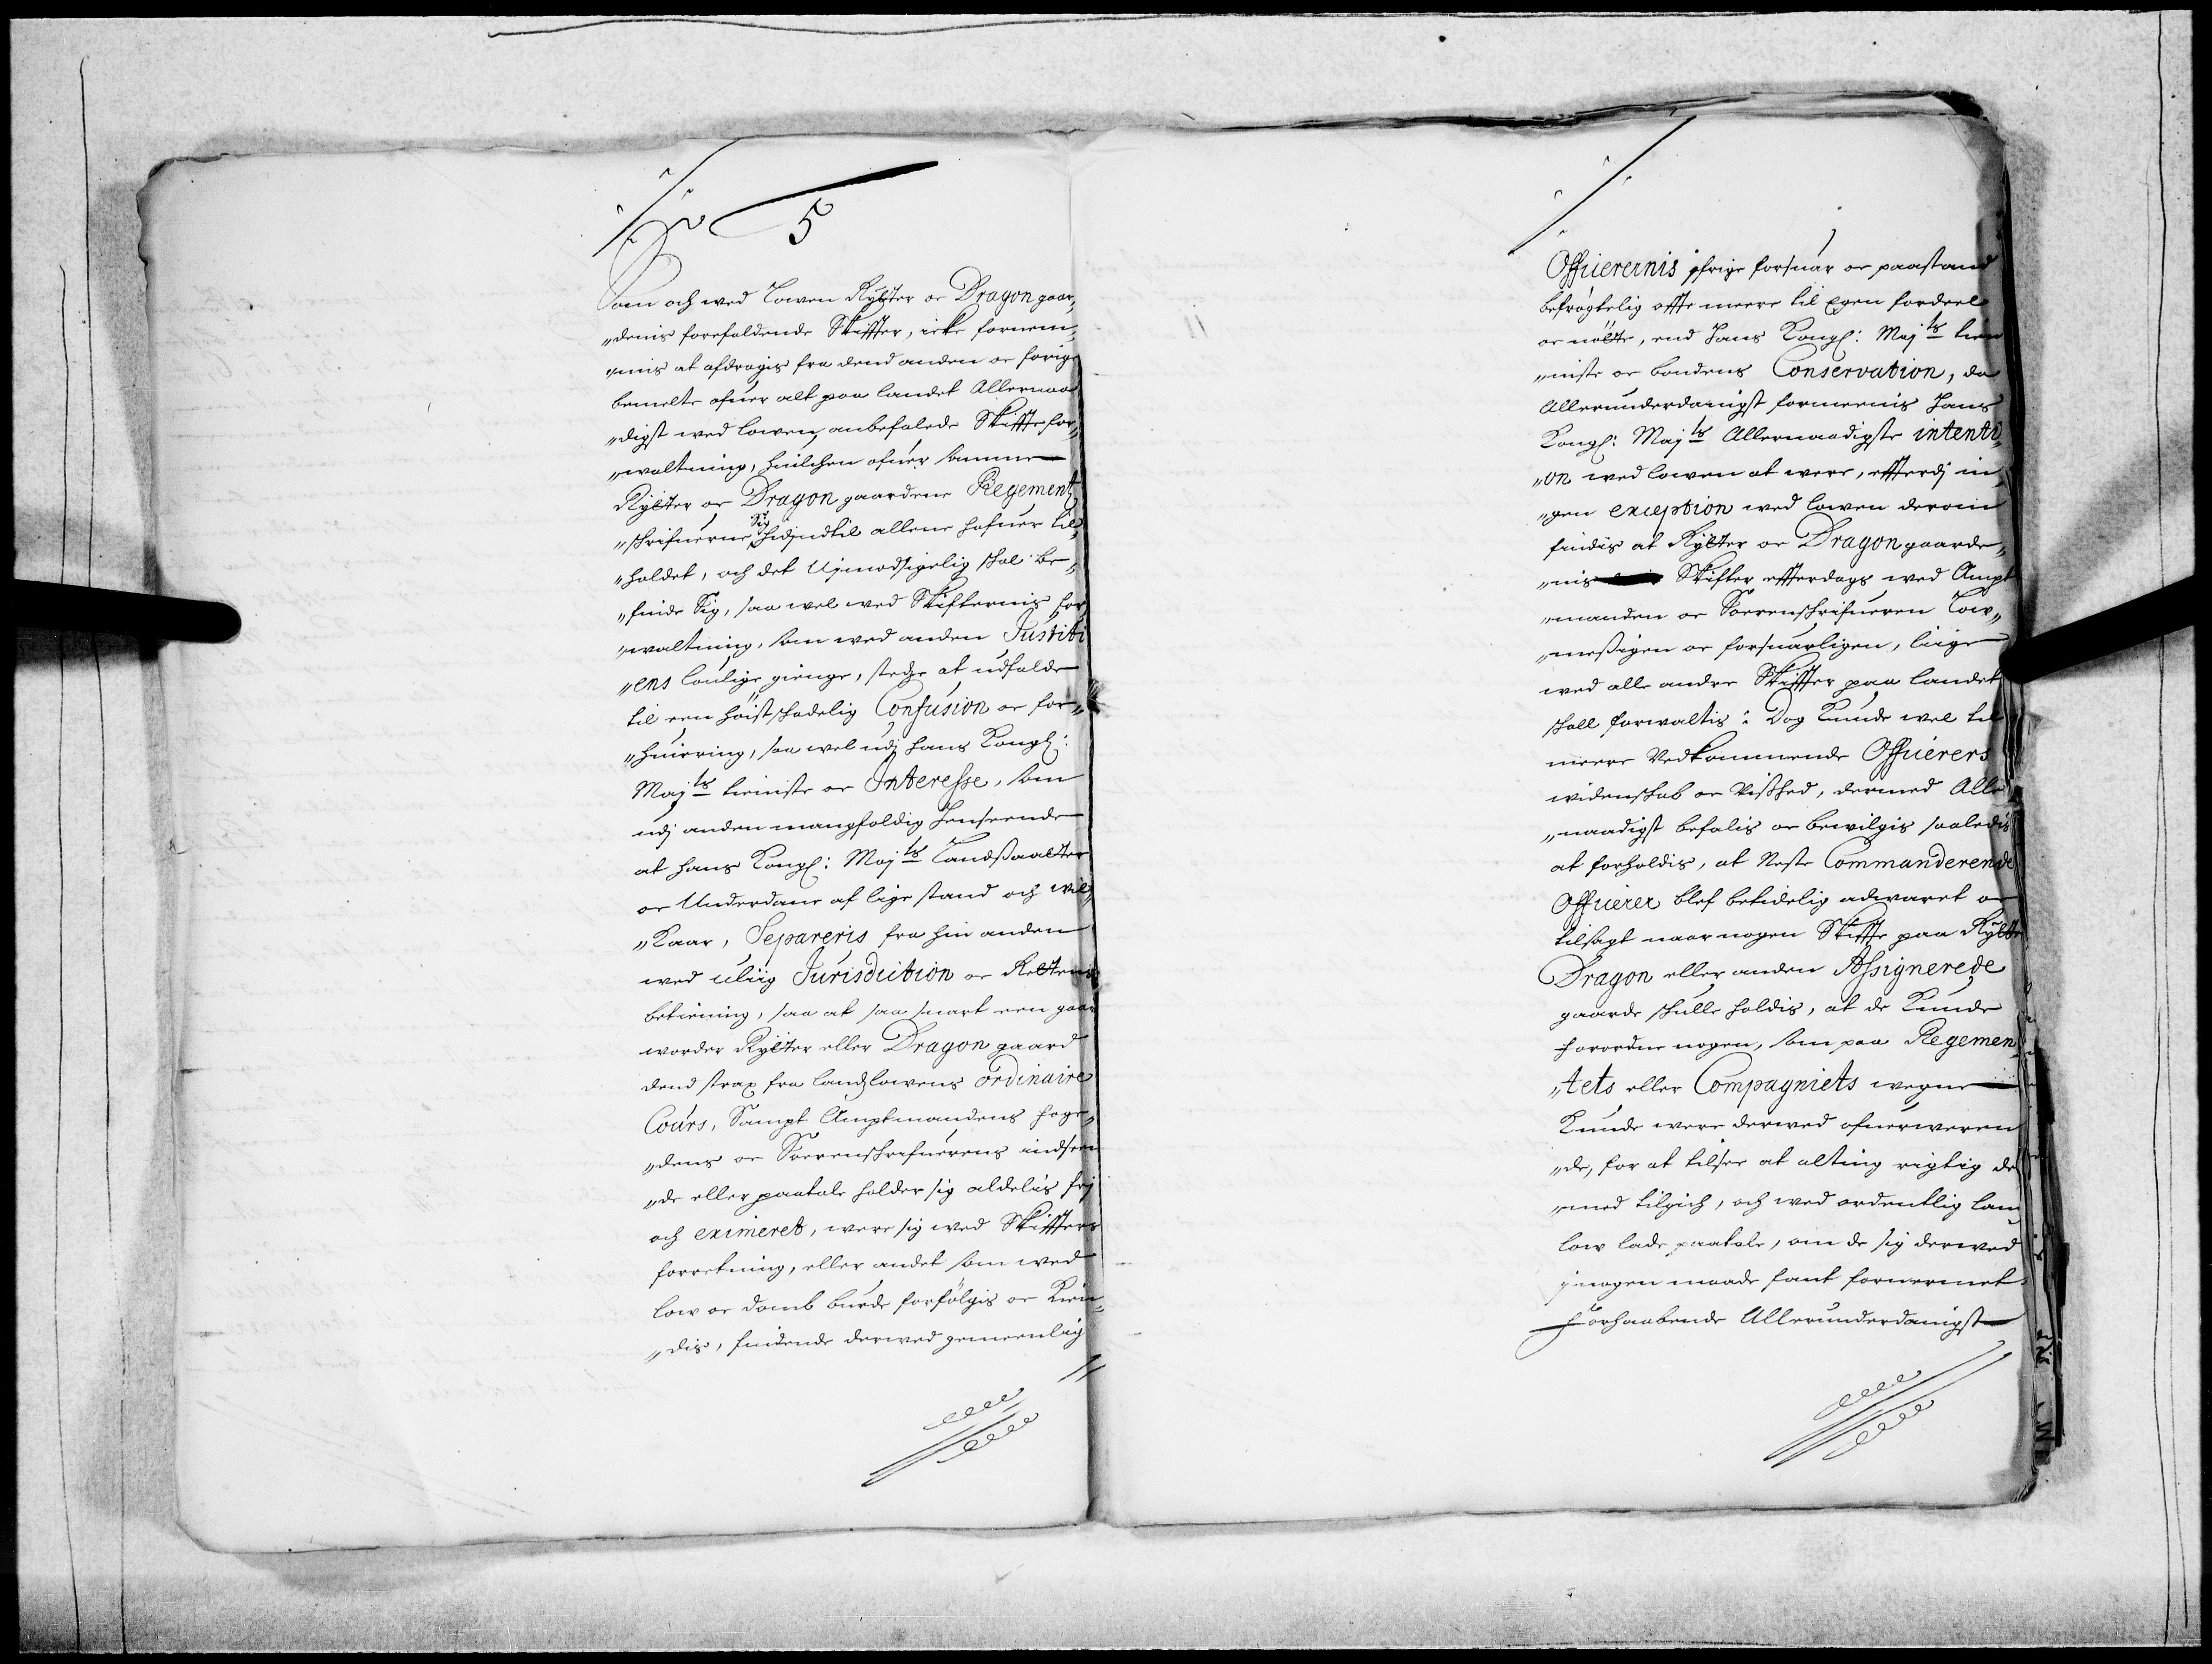 5
Som och wed Lowen Rytter oc Dragon gaar,,
,,denis forefaldende Skiffter, icke fornem,,
,,mis at afdragis fra dend anden oc forige
bemelte ofuer alt paa landet Allernaa
,,digst wed lowen anbefalede Skiffte for,,
,,waltning, huilchen ofuer samme
Rytter oc Dragon gaardene Regement,,
,,skrifuerne Sig hidindtil allene hafuer til,,
,,holdet, och det Uimodsigelig skal be,,
,,finde Sig, saa wel wed Skifternis for,,
,,waltning, som wed anden Justiti
,,ens loulige gienge, stedse at udfalde
til een höist skadelig Confusion oc for,,
,,huirring, saa wel udj hans Kongl:
Maj ts tieniste oc Interesse, som
udj anden mangfoldig henseende
at hans Kongl: Maj ts Landsaatter
oc Underdane af lige stand och wil,,
,,kaar, Separeris fra hin anden
wed uliig Jurisdiction oc Rettens
betiening, saa at saa snart een gaar
worder Rytter eller Dragon gaard
dend strax fra landslowens ordinaire
Cours, Sampt Amptmandens foge,,
,,dens oc Sorrenskrifuerens indseen
,,de eller paatale holder sig aldelis frj
och eximeret, were sig wed Skiffters
forretning, eller andet som wed
low oc domb burde forfölgis oc kien,,
,,dis, findende derwed gemeenlig
Officerernis ifrige forsuar oc paastand
betrögtelig offte meere til egen fordeel
oc nötte, end Hans Kongl: Maj ts tien
,,niste oc bondens Conservation, da
Allerunderdanigst formeenis Hans
Kongl: Maj ts Allernaadigste intenti,,
,,on wed lowen at were, effterdj in,,
,,gen exception wed lowen derom
findis at Rytter oc Dragon gaarde,,
,,nis Skifter effterdags wed Ampt
,,manden oc Sorrenskrifueren Low,,
,,messigen oc forsuarligen, liige
wed alle andre Skiffter paa landet
skall forwaltis: Dog kunde wel til
meere Vedkommende Officerers
widenskab oc Vished, dermed Aller
,,naadigst befalis oc bewilgis saaledis
at forholdis, at Neste Commanderende
Officerer blef betidelig adwaret oc
tilsagt naar nogen Skiffte paa Rytter
Dragon eller anden Assignerede
gaarde skulle holdis, at de kunde
forordne nogen, som paa Regemen
,,tets eller Compagniets wegne
kunde were derwed ofuerweren
,,de, for at tilsee at alting rigtig der
,,med tilgich, och wed ordentlig lan
low lade paatale, om de sig derwed
j nogen maade fant fornermet.
Forhaabende Allerunderdanigst